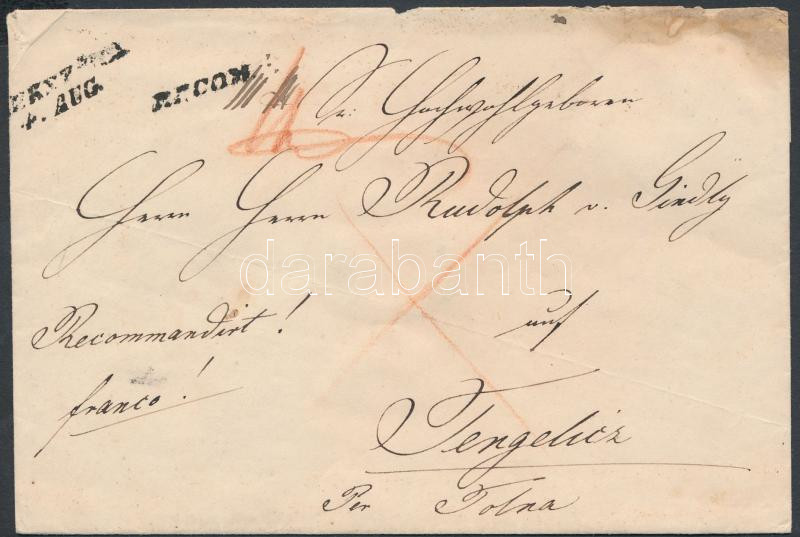 4. AUG.
RECOM.
Sr: Hochwohlgeboren
Herrn Herrn Rudolph v. Gindly
Recommandirt!
auf
franco!
Tengelicz
Per Tolna
darabanth